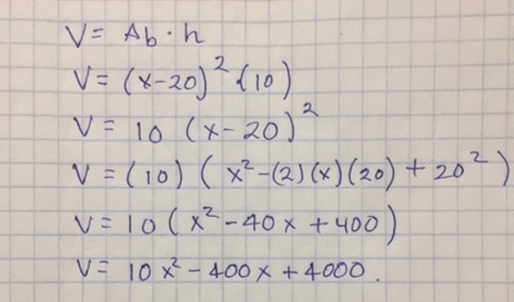 V= Ab·h
V= (x-20)² (10)
V= 10 (x-20)²
V=(10) ( x²-(2)(x)(20) + 20²)
V= 10 ( x²-40x +400)
V= 10x²-400x +4000.